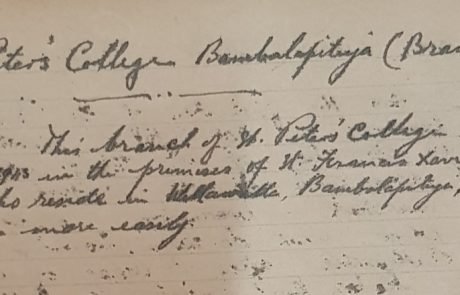 eter's College Bambalapitiya (Bra
This branch of St. Peter's College
1943 in the premises of St. Francis Xavi
ho reside in Wellawatte, Bambalapitiya,
more easily